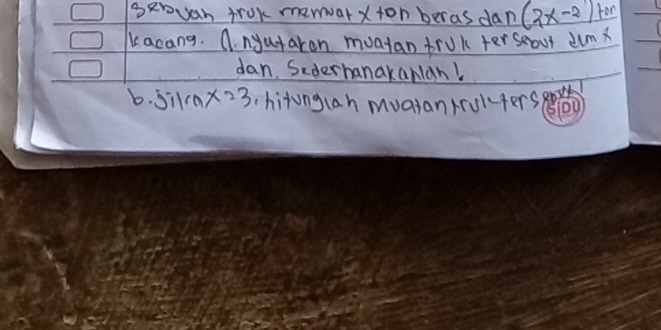 Sebuah truk memuat x ton beras dan (2x-2) ton
kacang. a. nyatakan muatan truk tersebut dlm x
dan Sederhanakanlah!
b. jika x=3, hitunglah muatan truk tersebut
SIDU